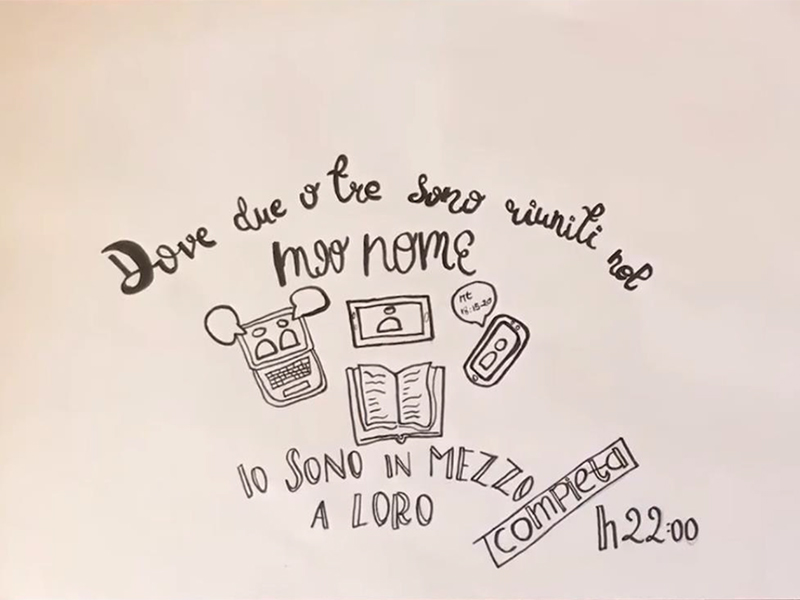 Dove due o tre sono riuniti nel
mio nome
Mt
18:15-20
IO SONO IN MEZZO
A LORO
COMPIETA
h22:00